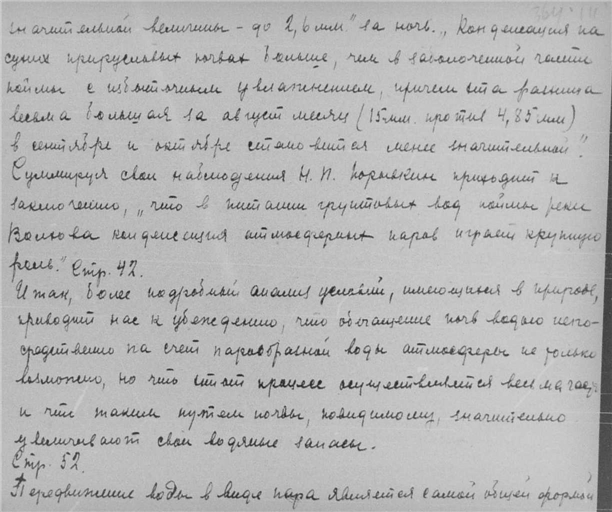 значительной величины - до 2,6 мм" за ночь. „Конденсация на
сухих прирусловых почвах больше, чем в заболоченной части
поймы с избыточным увлажнением, причем эта разница
весьма большая за август месяц (15 мм. против 4,85 мм)
в сентябре и октябре становится менее значительной".
Суммируя свои наблюдения Н. П. Порывкин приходит к
заключению, „что в питании грунтовых вод поймы реки
Волхова конденсация атмосферных паров играет крупную
роль." Стр. 42.
Итак, более подробный анализ условий, имеющихся в природе,
приводит нас к убеждению, что обогащение почв водою непо-
средственно на счет парообразной воды атмосферы не только
возможно, но что этот процесс осуществляется весьма часто
и что таким путем почвы, повидимому, значительно
увеличивают свои водяные запасы.
Стр. 52.
Передвижение воды в виде пара является самой общей формой